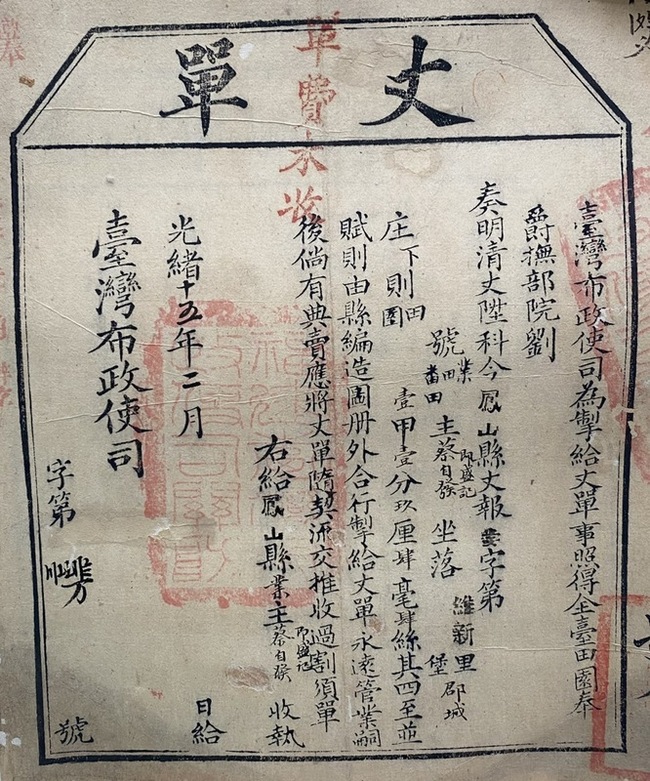 丈單
單費未收
臺灣布政使司為掣給丈單事照得全臺田園奉
爵撫部院劉
奏明清丈陞科今鳳山縣丈報字第
號業田主蔡自發即盛記坐落維新里堡郡城
庄下則田園壹甲壹分玖厘肆毫肆絲其四至並
賦則由縣編造圖冊外合行掣給丈單永遠管業嗣
後倘有典賣應將丈單隨契流交推收過割須單
右給鳳山縣業主蔡自發即盛記收執
光緒十五年二月日給
臺灣布政使司
字第號